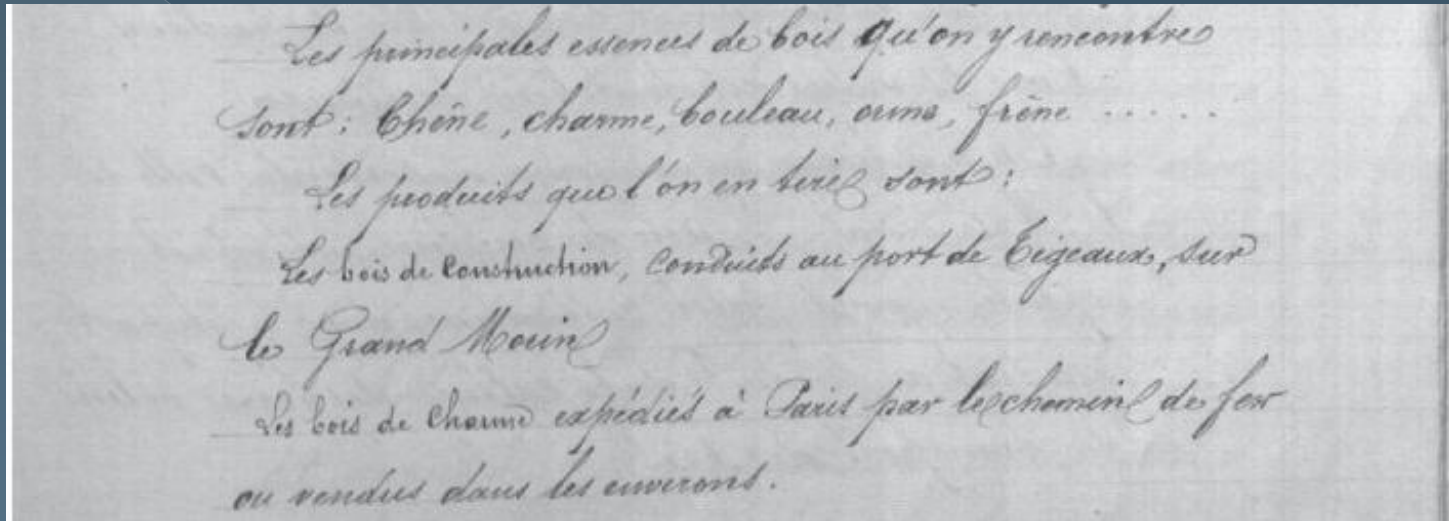 Les principales essences de bois qu'on y rencontre
sont : Chêne, charme, bouleau, orme, frêne .....
Les produits que l'on en tire sont :
Les bois de construction, conduits au port de Tigeaux, sur
le Grand Morin
Les bois de charme expédiés à Paris par le chemin de fer
ou vendus dans les environs.